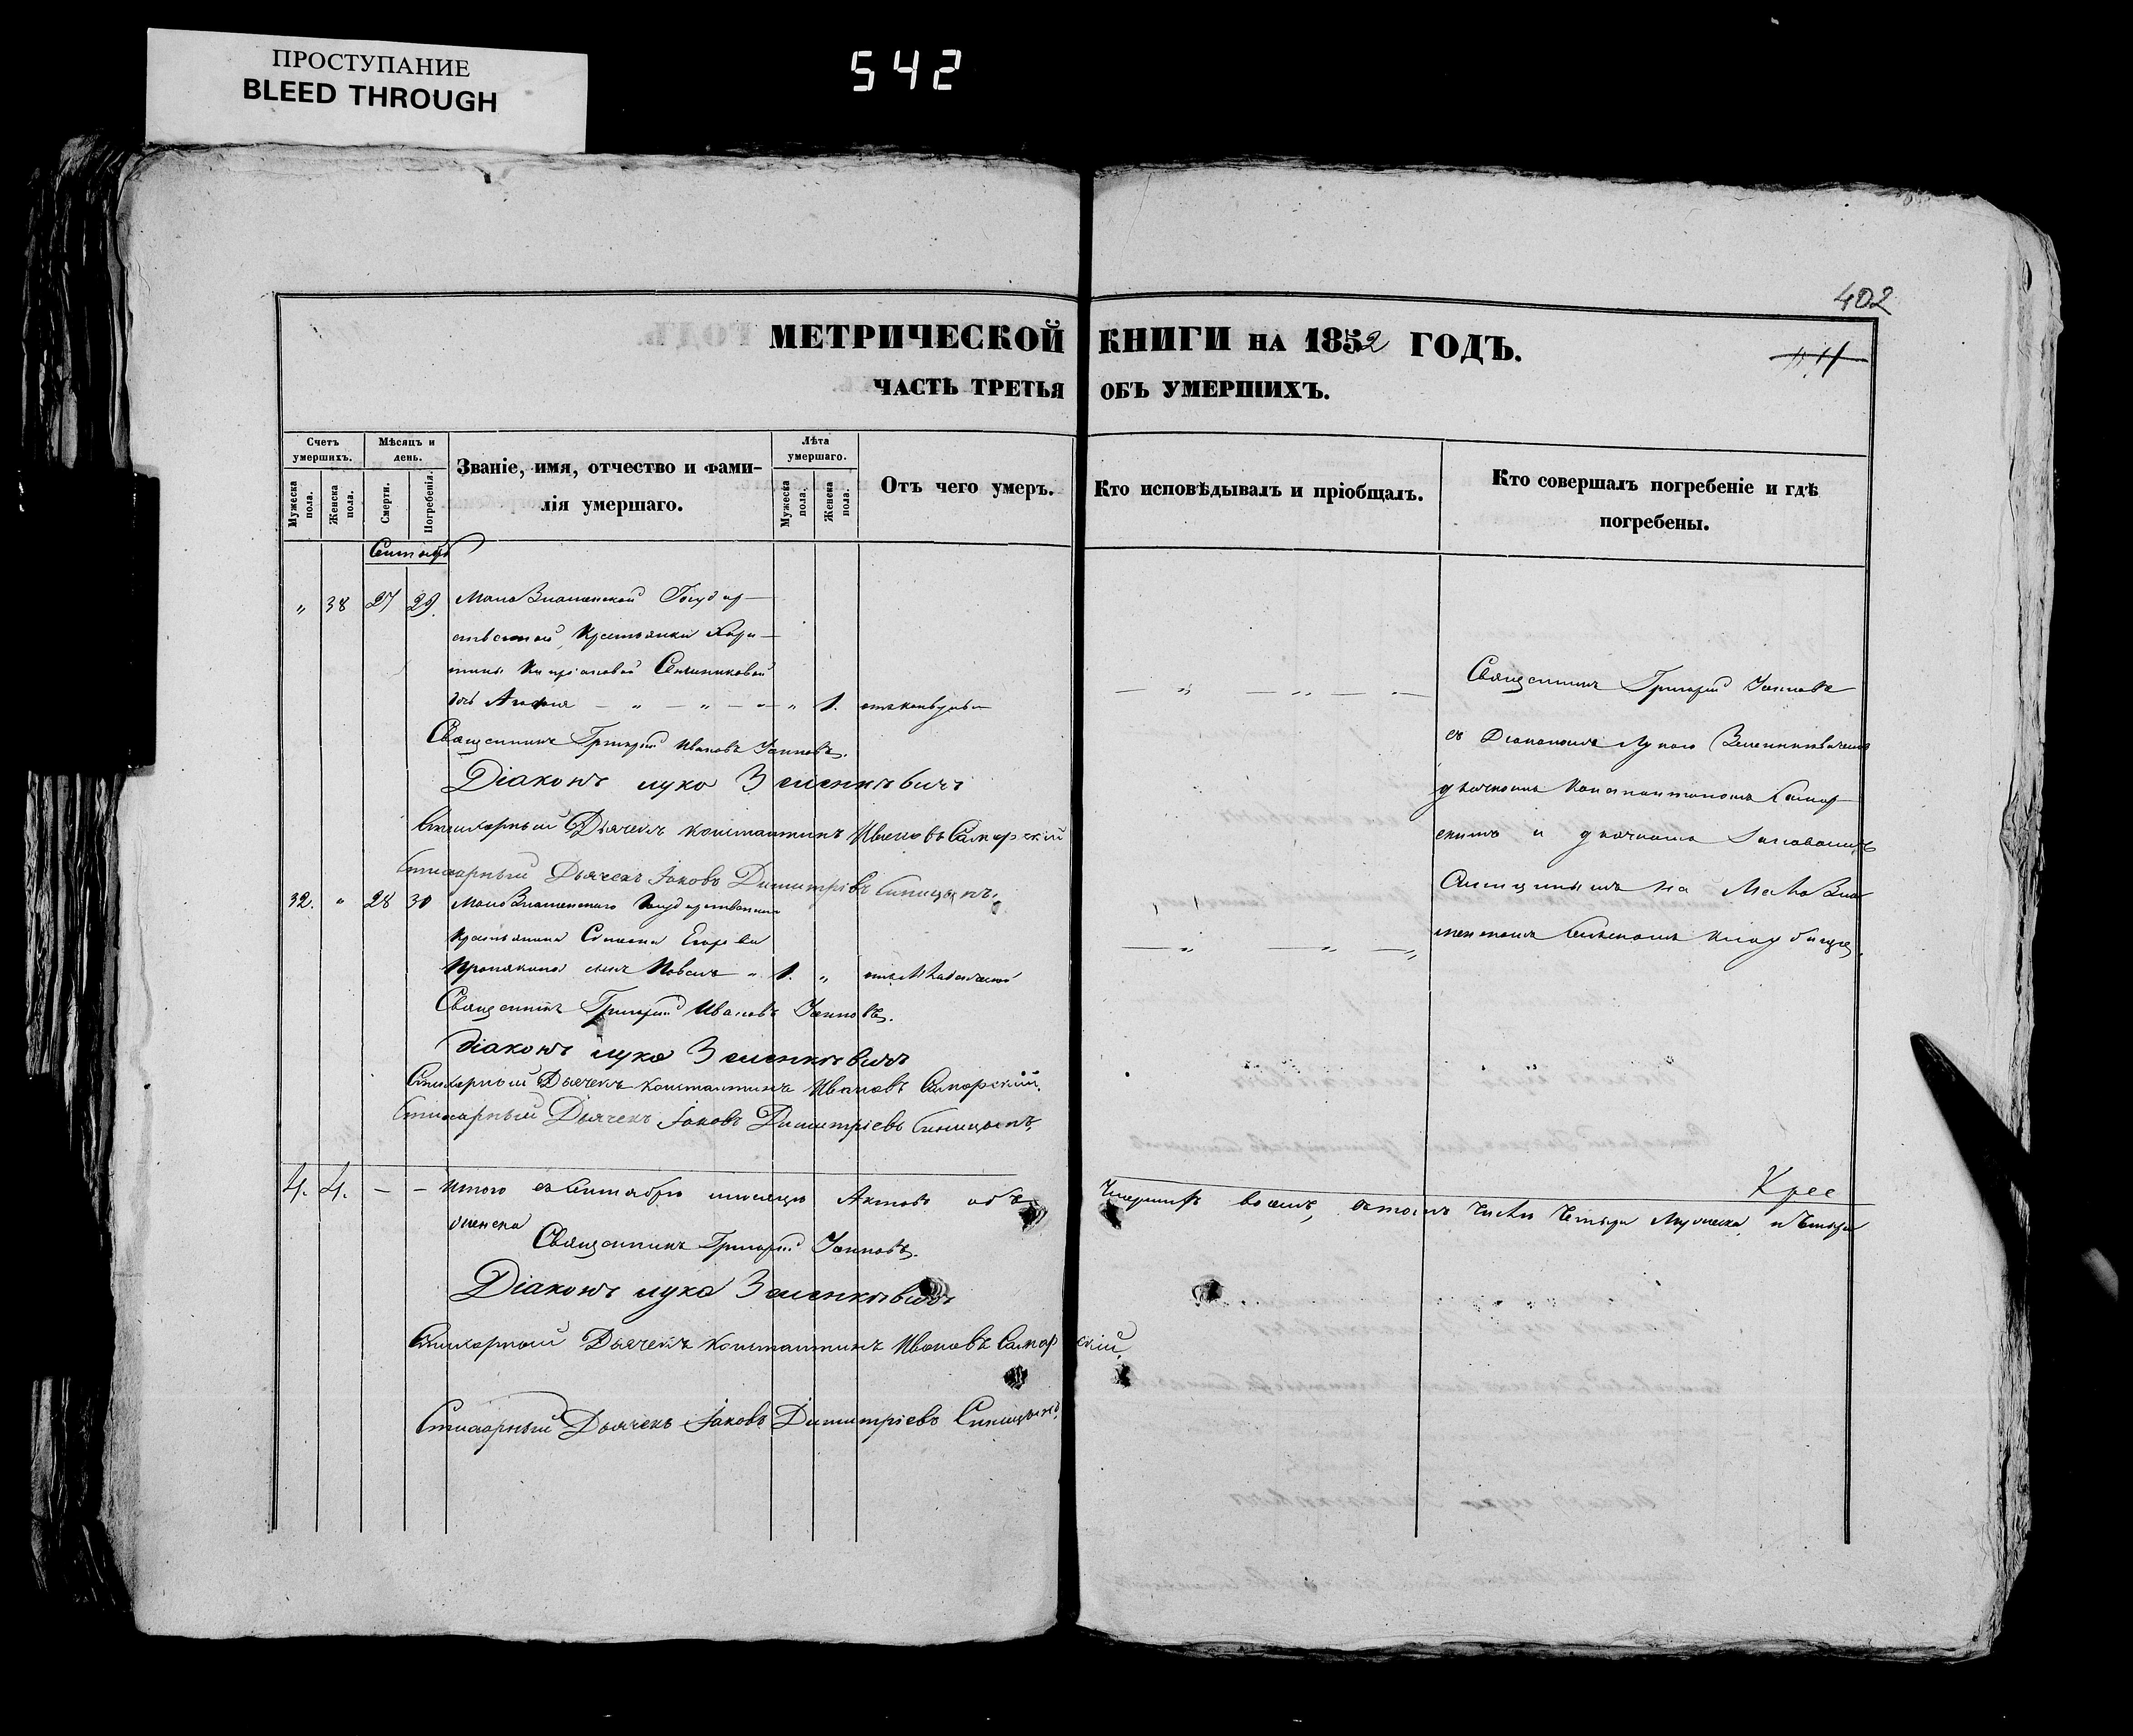 ПРОСТУПАНИЕ
BLEED THROUGH
542
402
МЕТРИЧЕСКОЙ КНИГИ НА 1852 ГОДЪ.
ЧАСТЬ ТРЕТЬЯ ОБЪ УМЕРШИХЪ.
Счетъ умершихъ.
Мужеска пола.
Женска пола.
Мѣсяцъ и день.
Смерти.
Погребенія.
Званіе, имя, отчество и фами-
лія умершаго.
Лѣта умершаго.
Мужеска пола.
Женска пола.
Отъ чего умеръ.
Кто исповѣдывалъ и пріобщалъ.
Кто совершалъ погребеніе и гдѣ
погребены.
„ 38 27 29. МалоЗнаменской Государ-
Кипріановой
1.
Священникъ Григорій Ивановъ
Діаконъ Лука Зеленкѣвичъ
Стихарный Дьячекъ Константинъ Ивановъ Самарскій
Стихарный Дьячекъ Іаковъ Димитріевъ Синицынъ.
Священникъ Григорій
съ Діакономъ Лукою Зеленкѣвичемъ
дьячкомъ Константиномъ Самар-
скимъ и дьячкомъ Іаковомъ
Синицынымъ на МалоЗна-
менскомъ кладбищѣ.
32. „ 28 30 МалоЗнаменскаго Государственнаго
крестьянина Егорова
сынъ Павелъ „ 1. „
Священникъ Григорій Ивановъ
Діаконъ Лука Зеленкѣвичъ
Стихарный Дьячекъ Константинъ Ивановъ Самарскій.
Стихарный Дьячекъ Іаковъ Димитріевъ Синицынъ.
4. 4. — — Итого въ Сентябрѣ мѣсяцѣ Актовъ объ Умершихъ восемь, въ томъ числѣ четыре Мужеска, и четыре
женска
Священникъ Григорій
Діаконъ Лука Зеленкѣвичъ
Стихарный Дьячекъ Константинъ Ивановъ Самарскій.
Стихарный Дьячекъ Іаковъ Димитріевъ Синицынъ.